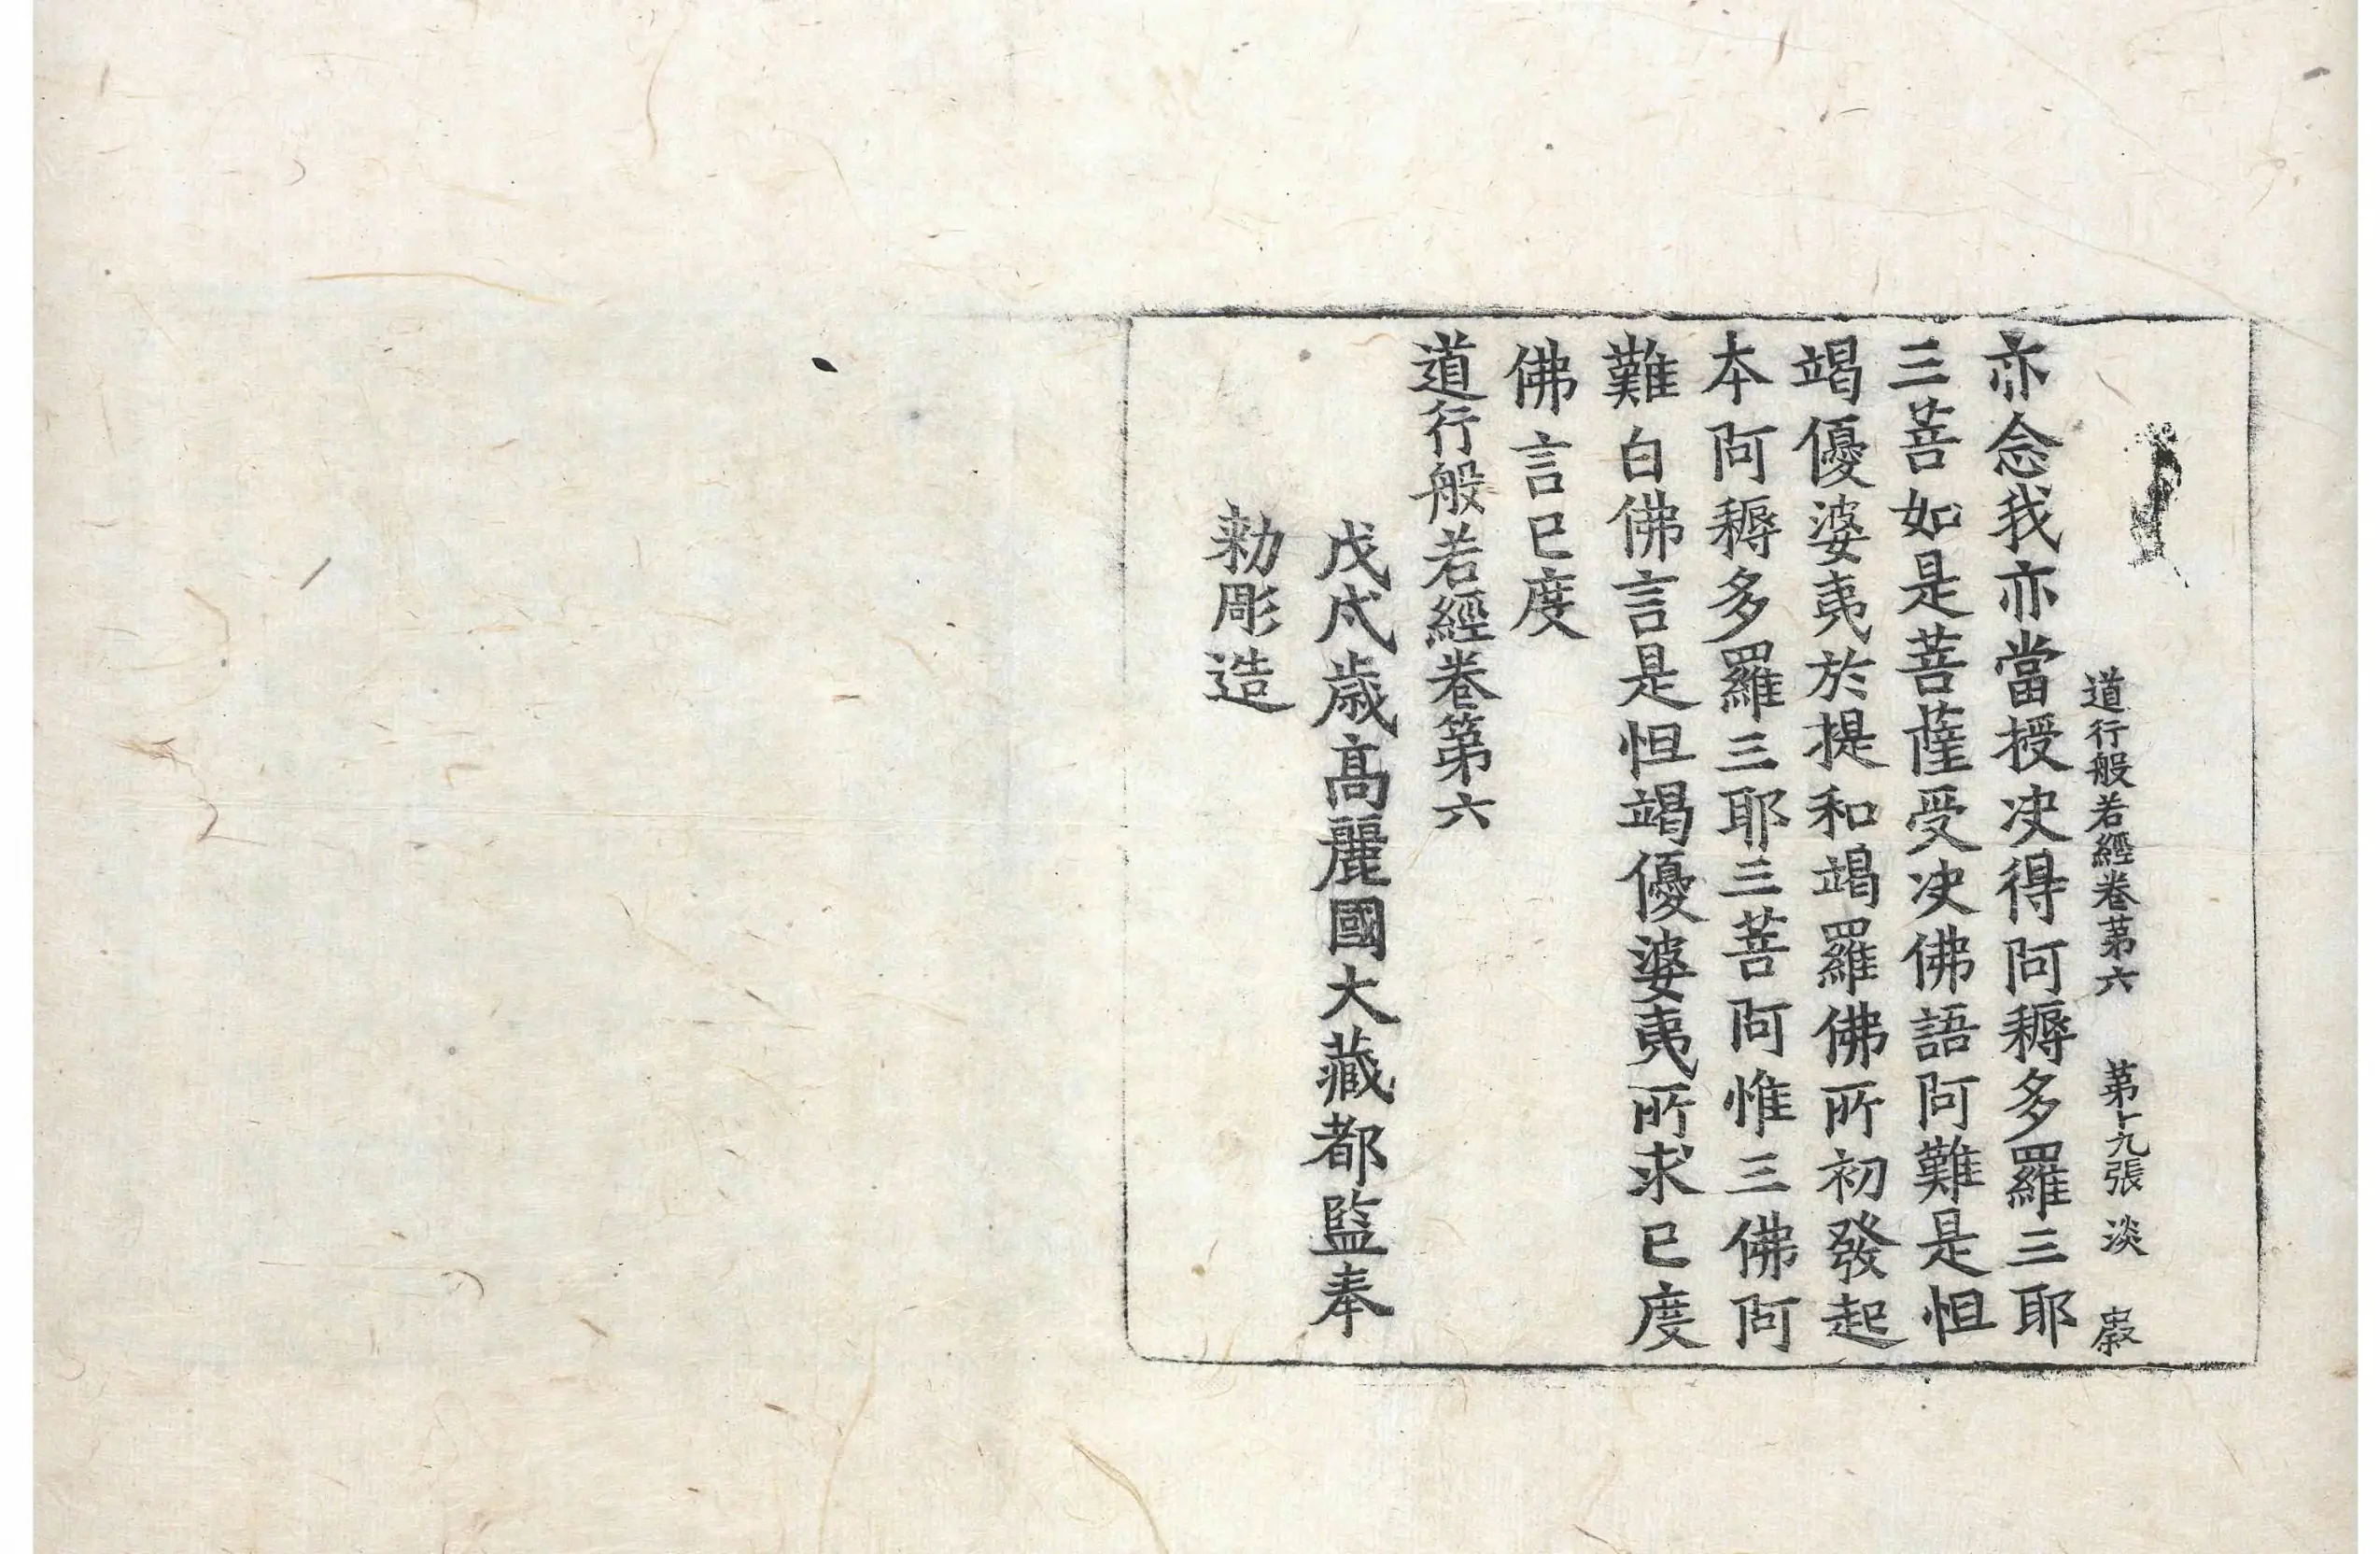 道行般若經卷第六 第十九張 淡
亦念我亦當授决得阿耨多羅三耶
三菩如是菩薩受决佛語阿難是怛
竭優婆夷於提和竭羅佛所初發起
本阿耨多羅三耶三菩阿惟三佛阿
難白佛言是怛竭優婆夷所求已度
佛言已度
道行般若經卷第六
戊戌歲高麗國大藏都監奉
勑彫造